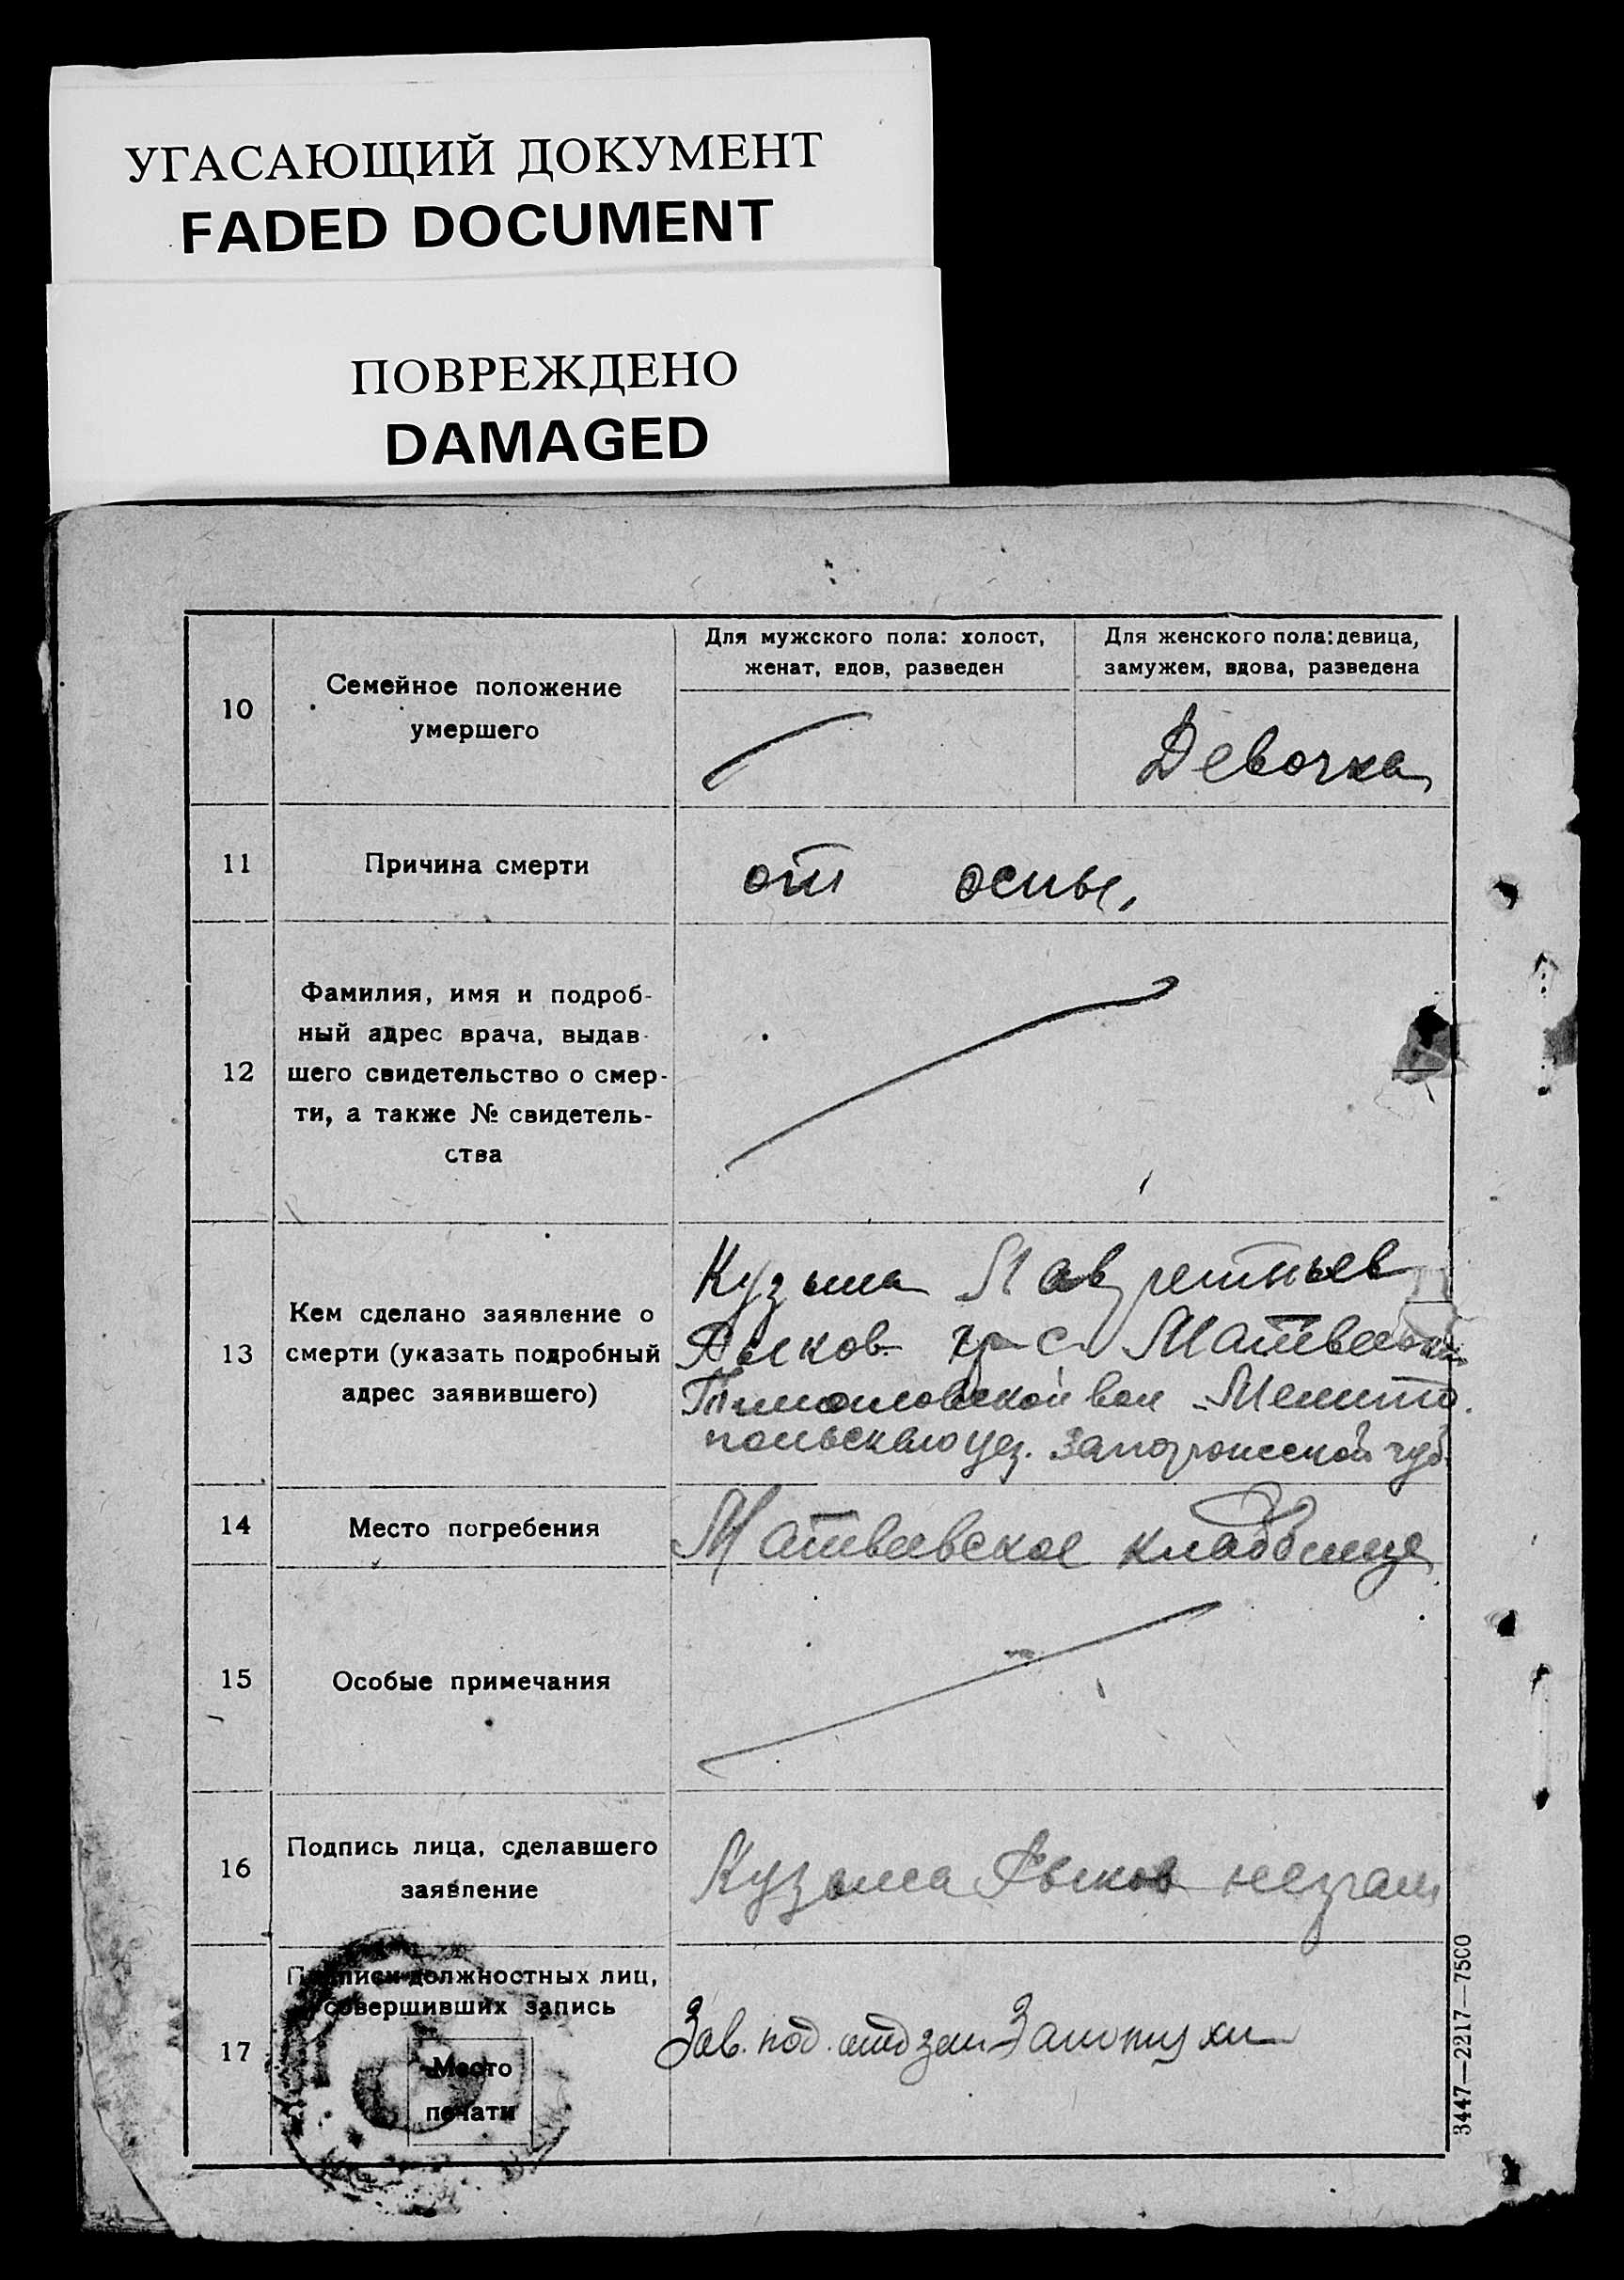 УГАСАЮЩИЙ ДОКУМЕНТ
FADED DOCUMENT
ПОВРЕЖДЕНО
DAMAGED
10
Семейное положение
умершего
Для мужского пола: холост,
женат, вдов, разведен
Для женского пола: девица,
замужем, вдова, разведена
Девочка
11
Причина смерти
от оспы,
12
Фамилия, имя и подроб-
ный адрес врача, выдав-
шего свидетельство о смер-
ти, а также № свидетель-
ства
13
Кем сделано заявление о
смерти (указать подробный
адрес заявившего)
Кузьма Лаврентьев
Рыков гр с Матвеевки
вол Мелито-
польского уез. Запорожской губ.
14
Место погребения
Матвеевское кладбище
15
Особые примечания
16
Подпись лица, сделавшего
заявление
Кузьма Рыков незгам
17
Подписи должностных лиц,
совершивших запись
Место
печати
Зав. под. отд
3447—2217—7500